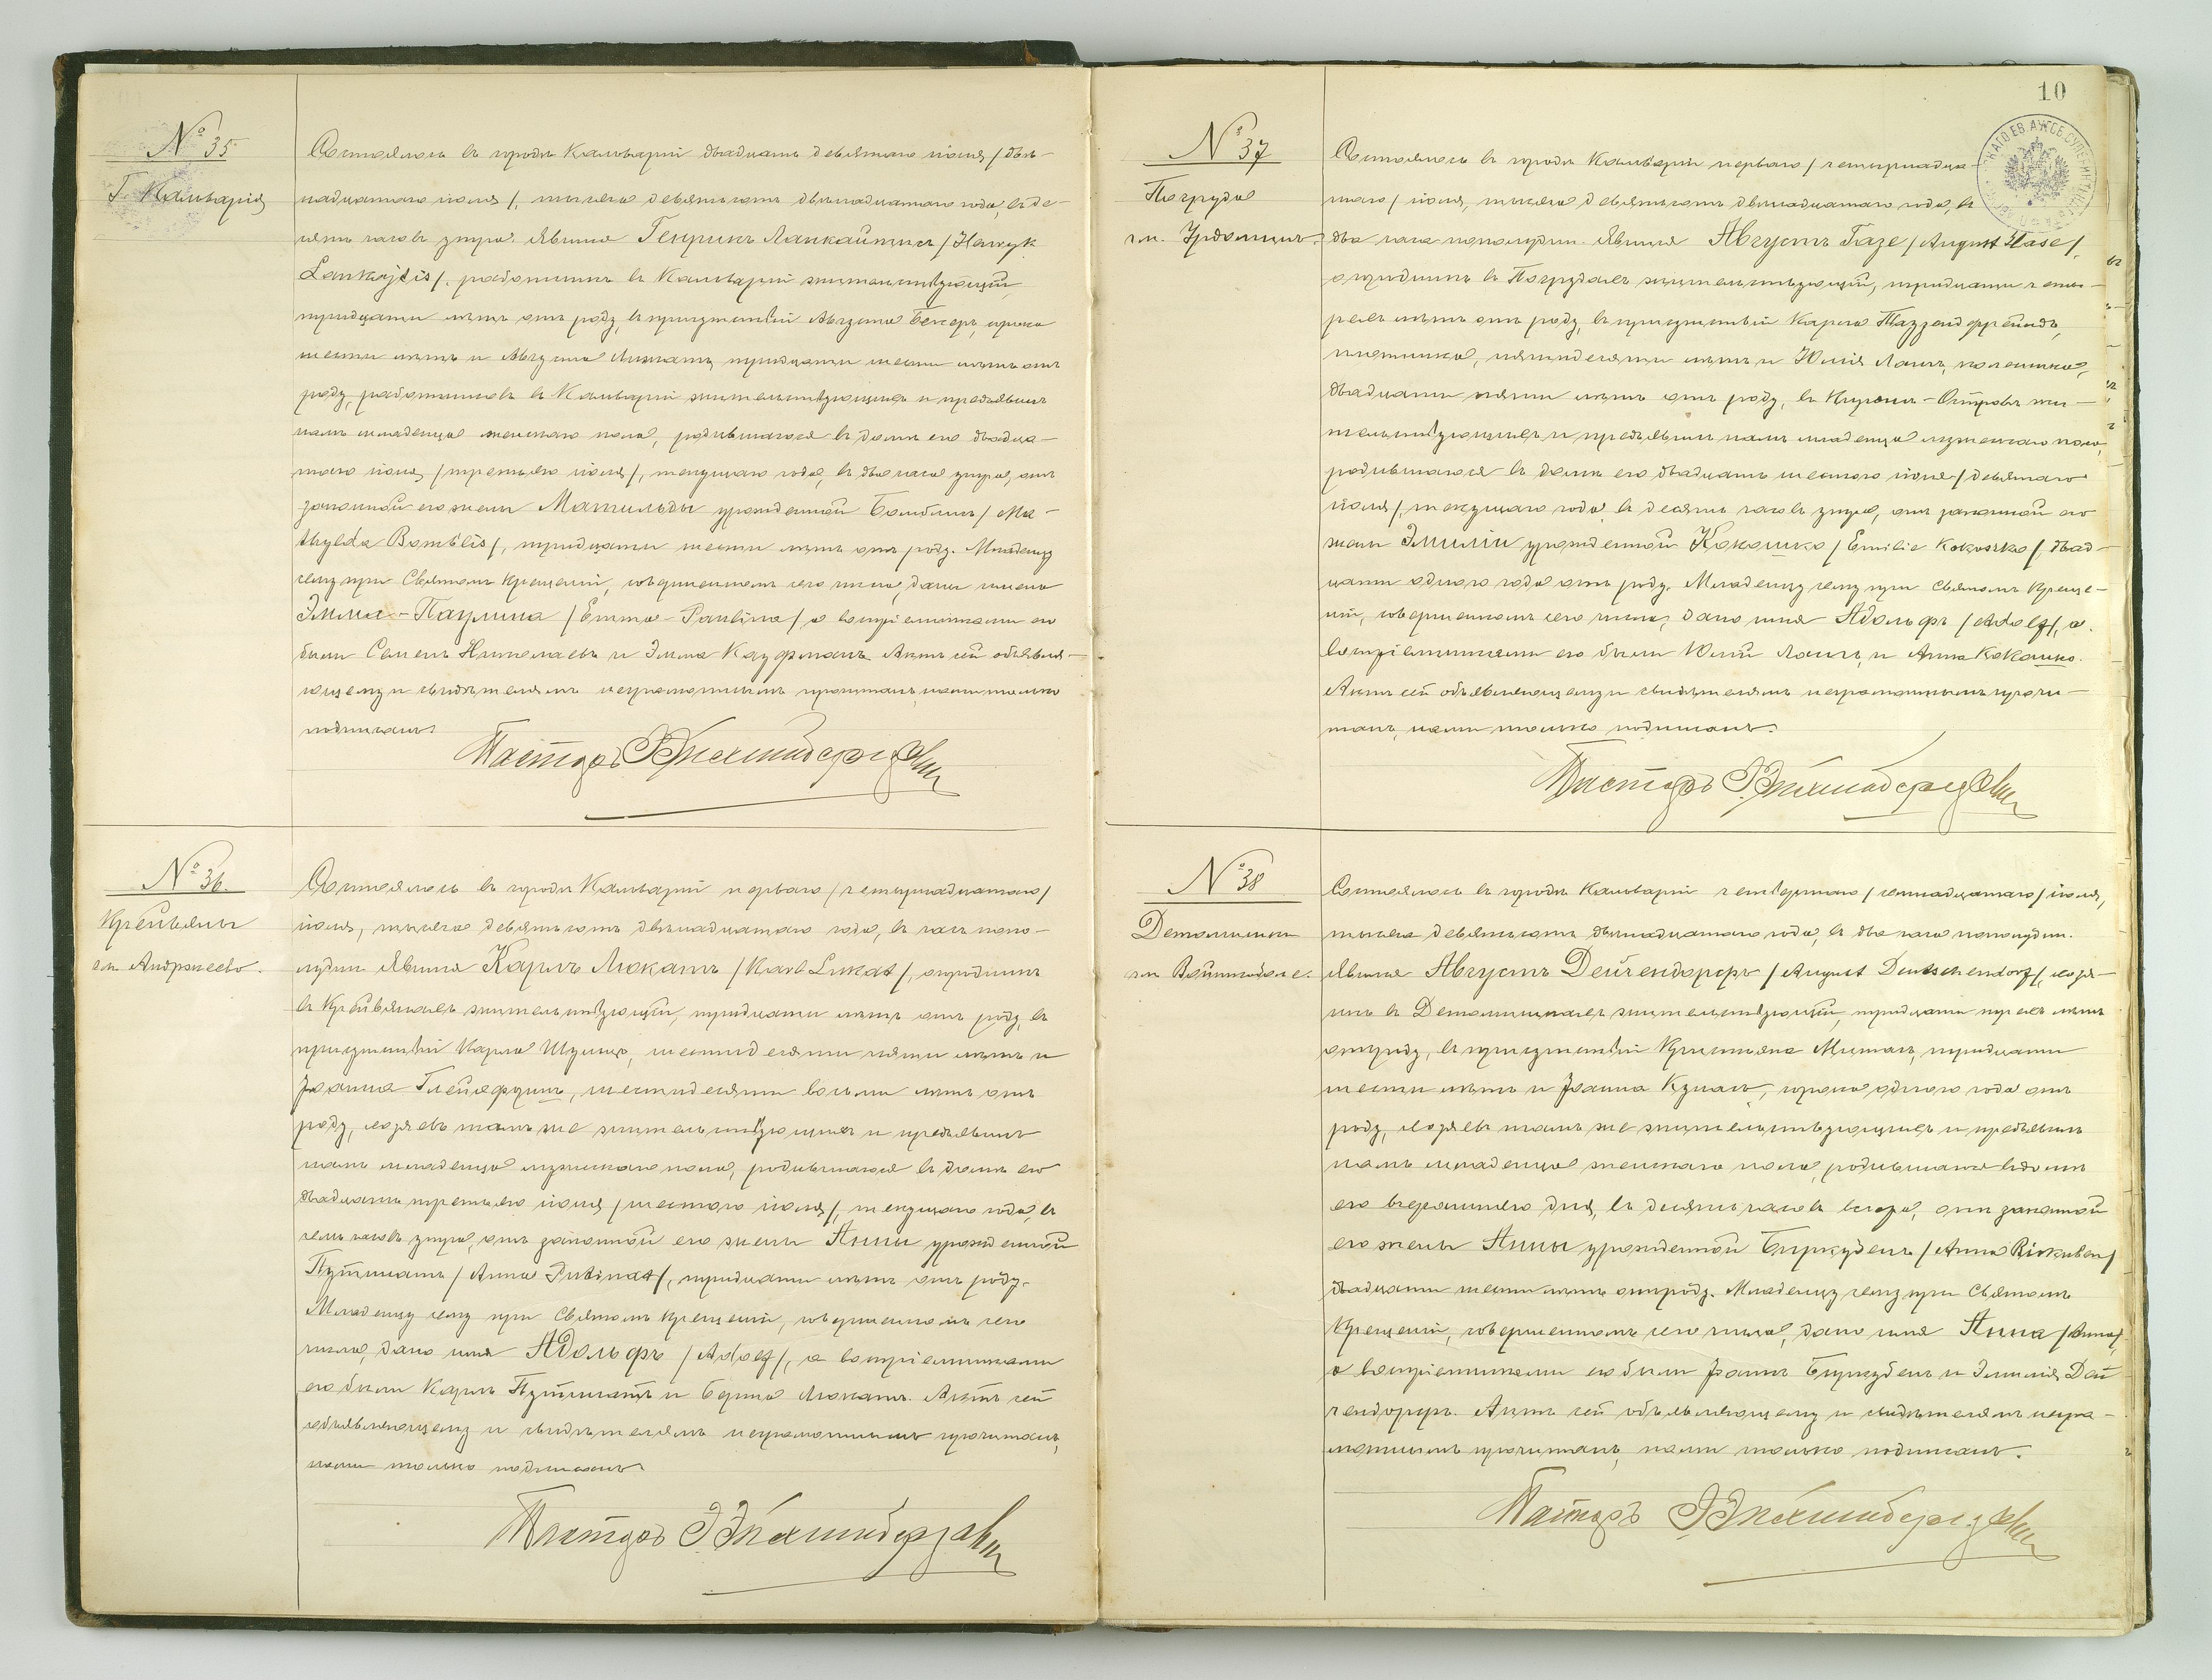 № 35
Г. Кальварія
Состоялось въ городѣ Кальваріи двадцать девятаго іюня /двѣ-
надцатаго іюля/, тысяча девятьсотъ двѣнадцатаго года, въ де-
вять часовъ утра. Явился Генрихъ Ланкайтисъ /Henryk
Lankajtis/, работникъ въ Кальваріи жительствующій,
тридцати лѣтъ отъ роду, въ присутствіи Августа Бекеръ, сорока
шести лѣтъ и Августа тридцати шести лѣтъ отъ
роду, работниковъ въ Кальваріи жительствующихъ и предъявилъ
намъ младенца женскаго пола, родившагося въ домѣ его двадца-
таго іюня /третьяго іюля/, текущаго года, въ два часа утра, отъ
законной его жены Матильды урожденной Бомблисъ /Ma-
thylda Bomblis/, тридцати шести лѣтъ отъ роду. Младенцу
сему при Святомъ Крещеніи, совершенномъ сего числа, даны имена
Эмма-Паулина /Emma-Paulina/ а воспріемниками его
были Семенъ Николаевъ и Эмма Кауфманъ. Актъ сей объявля-
ющему и свидѣтелямъ неграмотнымъ прочитанъ, нами только
подписанъ.
Пасторъ
№ 36.
Крейвяны
гм. Андржеево.
Состоялось въ городѣ Кальваріи перваго /четырнадцатаго/
іюля, тысяча девятьсотъ двѣнадцатаго года, въ часъ попо-
лудни. Явился Карлъ Люкатъ /Karl Lukat/, огродникъ
въ Крейвянахъ жительствующій, тридцати лѣтъ отъ роду, въ
присутствіи Карла Шульцъ, шестидесяти пяти лѣтъ и
Іоанна шестидесяти восьми лѣтъ отъ
роду, козяевъ тамъ же жительствующихъ и предъявилъ
намъ младенца мужскаго пола, родившагося въ домѣ его
двадцать третьяго іюня /шестого іюля/, текущаго года, въ
семь часовъ утра, отъ законной его жены Анны урожденной
Путинатъ /Anna Putinat/, тридцати лѣтъ отъ роду.
Младенцу сему при Святомъ Крещеніи, совершенномъ сего
числа, дано имя Адольфъ /Adolf/, а воспріемниками
его были Карлъ Путинатъ и Берта Люкатъ. Актъ сей
объявляющему и свидѣтелямъ неграмотнымъ прочитанъ,
нами только подписанъ.
Пасторъ
10
№ 37
Погруда
гм. Урдоминъ.
Состоялось въ городѣ Кальваріи перваго /четырнадца-
таго/ іюля, тысяча девятьсотъ двѣнадцатаго года, въ
два часа пополудни. Явился Августъ Газе /August Hase/,
огродникъ въ Погрудахъ жительствующій, тридцати четы-
рехъ лѣтъ отъ роду, въ присутствіи Карла
плотника, пятидесяти лѣтъ и Юлія Лашъ,
двадцати пяти лѣтъ отъ роду, въ жи-
тельствующихъ и предъявилъ намъ младенца мужскаго пола,
родившагося въ домѣ его двадцать шестого іюня /девятаго
іюля/, текущаго года, въ десять часовъ утра, отъ законной его
жены Эмиліи урожденной Кокошко /Emilie Kokoszko/, двад-
цати одного года отъ роду. Младенцу сему при Святомъ Креще-
ніи, совершенномъ сего числа, дано имя Адольфъ /Adolf/, а
воспріемниками его были Юлій Лашъ и Анна Кокошко.
Актъ сей объявляющему и свидѣтелямъ неграмотнымъ прочи-
танъ, нами только подписанъ.
Пасторъ
№ 38
Детомишки
гм. Войткоболе.
Состоялось въ городѣ Кальваріи четвертаго /семнадцатаго/ іюля,
тысяча девятьсотъ двѣнадцатаго года, въ два часа пополудни.
Явился Августъ Дейчендорфъ /August Deutschendorf/, козя-
инъ въ Детомишкахъ жительствующій, тридцати трехъ лѣтъ
отъ роду, въ присутствіи Христіана тридцати
шести лѣтъ и Іоанна сорока одного года отъ
роду, козяевъ тамъ же жительствующихъ и предъявилъ
намъ младенца женскаго пола, родившагося въ домѣ
его вчерашняго дня, въ десять часовъ вечера, отъ законной
его жены Анны урожденной Биркубенъ /Anna Birkuben/
двадцати шести лѣтъ отъ роду. Младенцу сему при Святомъ
Крещеніи, совершенномъ сего числа, дано имя Анна /Anna/,
а воспріемниками его были Іоаннъ Биркубенъ и Эмилія Дей
чендорфъ. Актъ сей объявляющему и свидѣтелямъ негра-
мотнымъ прочитанъ, нами только подписанъ.
Пасторъ